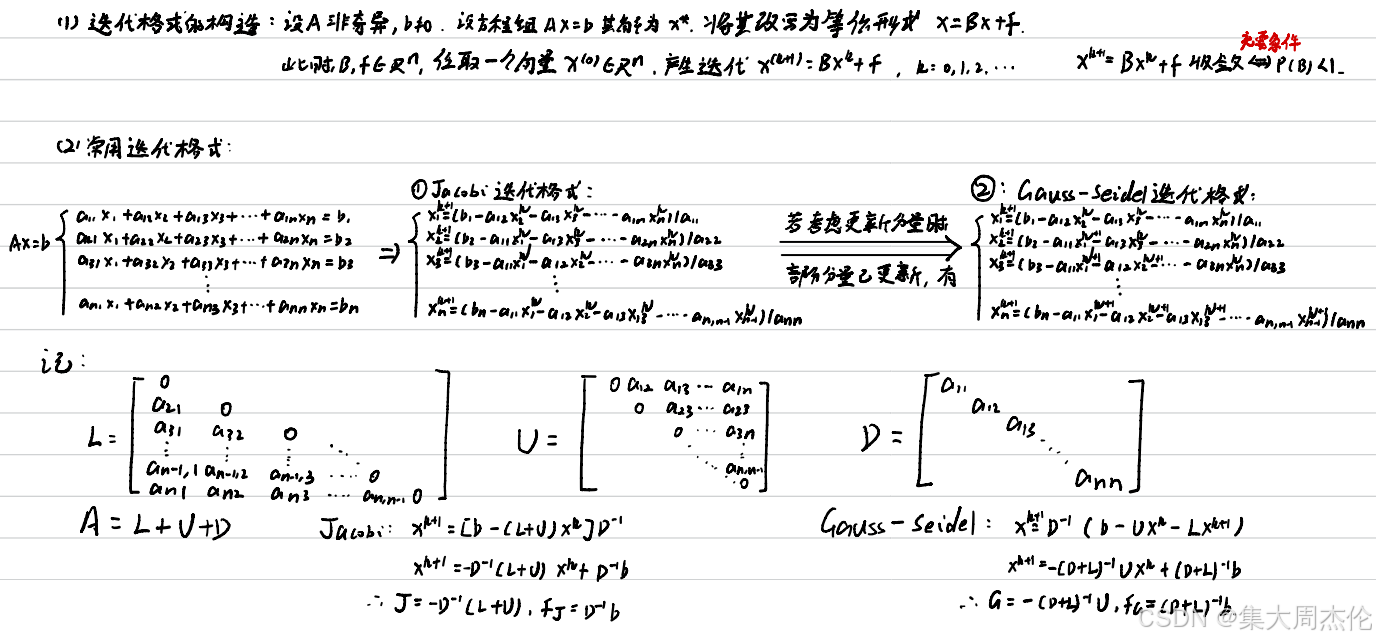 (1) 迭代格式的构造：设A非奇异, b≠0. 设方程组 Ax=b 其解为 x*. 将其改写为等价形式 x=Bx+f.
此时, B, f∈Rⁿ, 任取一个向量 x⁽⁰⁾∈Rⁿ, 产生迭代 x⁽ᵏ⁺¹⁾=Bxᵏ+f , k=0,1,2,⋯
充要条件
xᵏ⁺¹=Bxᵏ+f 收敛⇔ρ(B)<1.
(2) 常用迭代格式：
① Jacobi迭代格式：
②：Gauss-Seidel迭代格式：
Ax=b
a₁₁x₁+a₁₂x₂+a₁₃x₃+⋯+a₁ₙxₙ=b₁
a₂₁x₁+a₂₂x₂+a₂₃x₃+⋯+a₂ₙxₙ=b₂
a₃₁x₁+a₃₂x₂+a₃₃x₃+⋯+a₃ₙxₙ=b₃
⋮
aₙ₁x₁+aₙ₂x₂+aₙ₃x₃+⋯+aₙₙxₙ=bₙ
⇒
x₁ᵏ⁺¹=(b₁-a₁₂x₂ᵏ-a₁₃x₃ᵏ-⋯-a₁ₙxₙᵏ)/a₁₁
x₂ᵏ⁺¹=(b₂-a₁₁x₁ᵏ-a₁₃x₃ᵏ-⋯-a₂ₙxₙᵏ)/a₂₂
x₃ᵏ⁺¹=(b₃-a₁₁x₁ᵏ-a₁₂x₂ᵏ-⋯-a₃ₙxₙᵏ)/a₃₃
⋮
xₙᵏ⁺¹=(bₙ-a₁₁x₁ᵏ-a₁₂x₂ᵏ-a₁₃x₃ᵏ-⋯-aₙ,ₙ₋₁xₙ₋₁ᵏ)/aₙₙ
若考虑更新分量时
部分分量已更新, 有
x₁ᵏ⁺¹=(b₁-a₁₂x₂ᵏ-a₁₃x₃ᵏ-⋯-a₁ₙxₙᵏ)/a₁₁
x₂ᵏ⁺¹=(b₂-a₁₁x₁ᵏ⁺¹-a₁₃x₃ᵏ-⋯-a₂ₙxₙᵏ)/a₂₂
x₃ᵏ⁺¹=(b₃-a₁₁x₁ᵏ⁺¹-a₁₂x₂ᵏ⁺¹-⋯-a₃ₙxₙᵏ)/a₃₃
⋮
xₙᵏ⁺¹=(bₙ-a₁₁x₁ᵏ⁺¹-a₁₂x₂ᵏ⁺¹-a₁₃x₃ᵏ⁺¹-⋯-aₙ,ₙ₋₁xₙ₋₁ᵏ⁺¹)/aₙₙ
记：
L=
0
a₂₁ 0
a₃₁ a₃₂ 0
⋮ ⋮ ⋮ ⋱
aₙ₋₁,₁ aₙ₋₁,₂ aₙ₋₁,₃ ⋯ 0
aₙ₁ aₙ₂ aₙ₃ ⋯ aₙ,ₙ₋₁ 0
U=
0 a₁₂ a₁₃ ⋯ a₁ₙ
0 a₂₃ ⋯ a₂₃
0 ⋯ a₃ₙ
⋱ ⋮
aₙ,ₙ₋₁
0
D=
a₁₁
a₁₂
a₁₃
⋱
aₙₙ
A=L+U+D
Jacobi: xᵏ⁺¹=[b-(L+U)xᵏ]D⁻¹
xᵏ⁺¹=-D⁻¹(L+U)xᵏ+D⁻¹b
∴ J=-D⁻¹(L+U), fJ=D⁻¹b
Gauss-Seidel: xᵏ⁺¹=D⁻¹(b-Uxᵏ-Lxᵏ⁺¹)
xᵏ⁺¹=-(D+L)⁻¹Uxᵏ+(D+L)⁻¹b
∴ G=-(D+L)⁻¹U, fG=(D+L)⁻¹b
CSDN @集大周杰伦